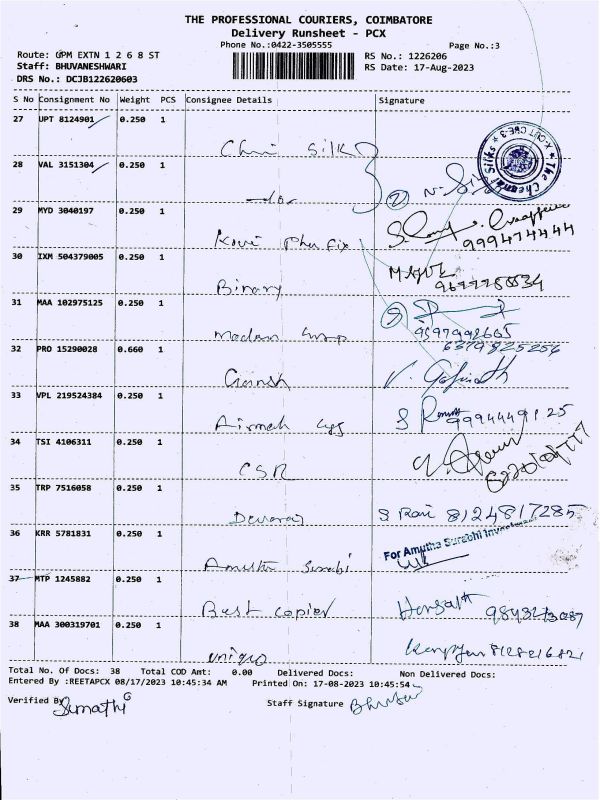 THE PROFESSIONAL COURIERS, COIMBATORE
Delivery Runsheet - PCX
Phone No.:0422-3505555
Page No.:3
Route: GPM EXTN 1 2 6 8 ST
RS No.: 1226206
Staff: BHUVANESHWARI
RS Date: 17-Aug-2023
DRS No.: DCJB122620603
S No Consignment No Weight PCS Consignee Details Signature
27 UPT 8124901 0.250 1
28 VAL 3151304 0.250 1
The Chennai Silks
29 MYD 3040197 0.250 1
999474444
30 IXM 504379005 0.250 1
Binary
31 MAA 102975125 0.250 1
Modern
6379825256
32 PRO 15290028 0.660 1
Ganesh V. Gopinath
33 VPL 219524384 0.250 1
9994449125
34 TSI 4106311 0.250 1
CSR
35 TRP 7516058 0.250 1
Devaraj S Rani 8124817285
36 KRR 5781831 0.250 1
For Amutha Surabhi
Amutha Surabi
37 MTP 1245882 0.250 1
Best copier
38 MAA 300319701 0.250 1
unique 8128216821
Total No. Of Docs: 38 Total COD Amt: 0.00 Delivered Docs: Non Delivered Docs:
Entered By :REETAPCX 08/17/2023 10:45:34 AM Printed On: 17-08-2023 10:45:54
Verified By Sumathi Staff Signature